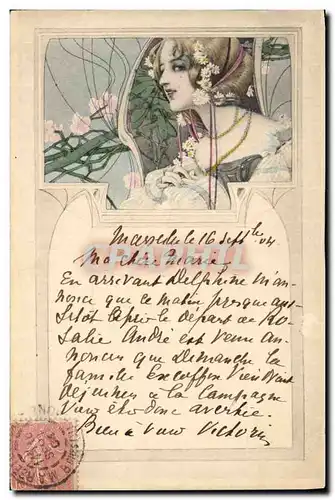 Marseille 16 Septbre 04
Ma chère Marie,
En arrivant Delphine m'an-
nonce que ce matin presque aus-
sitôt après le départ de Ro-
salie André est venu an-
noncer que dimanche la
famille Escoffier viendrait
déjeuner à la Campagne
Vous êtes donc avertie.
Bien à vous Victorin